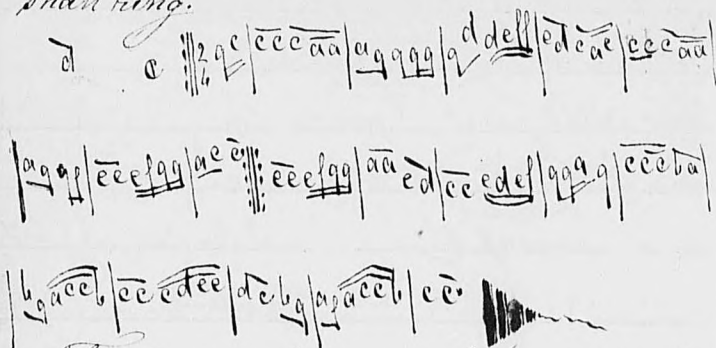 shall ring.
d c 2/4 g c | c c c a a | a g g g g | g d d e f f | e d c a c | c c c a a |
| a g a f | c c e f g g | a c c c e e f g g | a a e d | c c e d e f | g g a g | c c c b a |
| b g a c c b | c c c d e e | d c b g | a g a c c b | c c